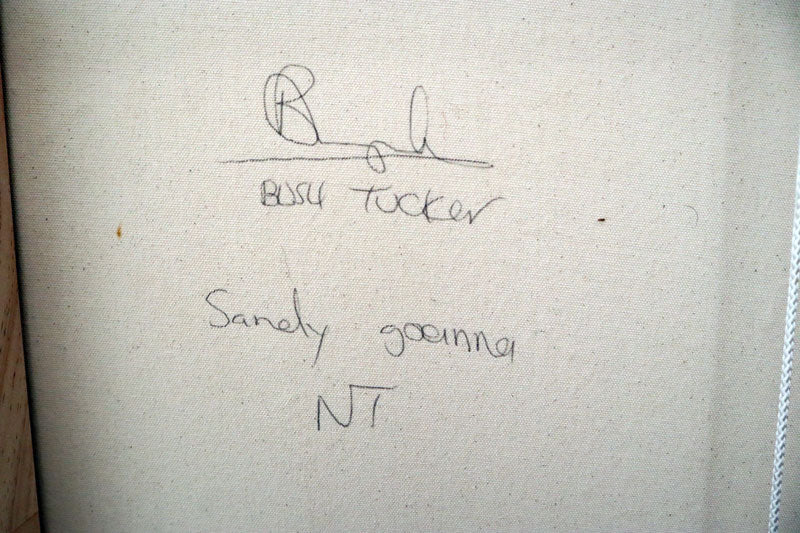 BUSH TUCKER
Sandy goanna
NT